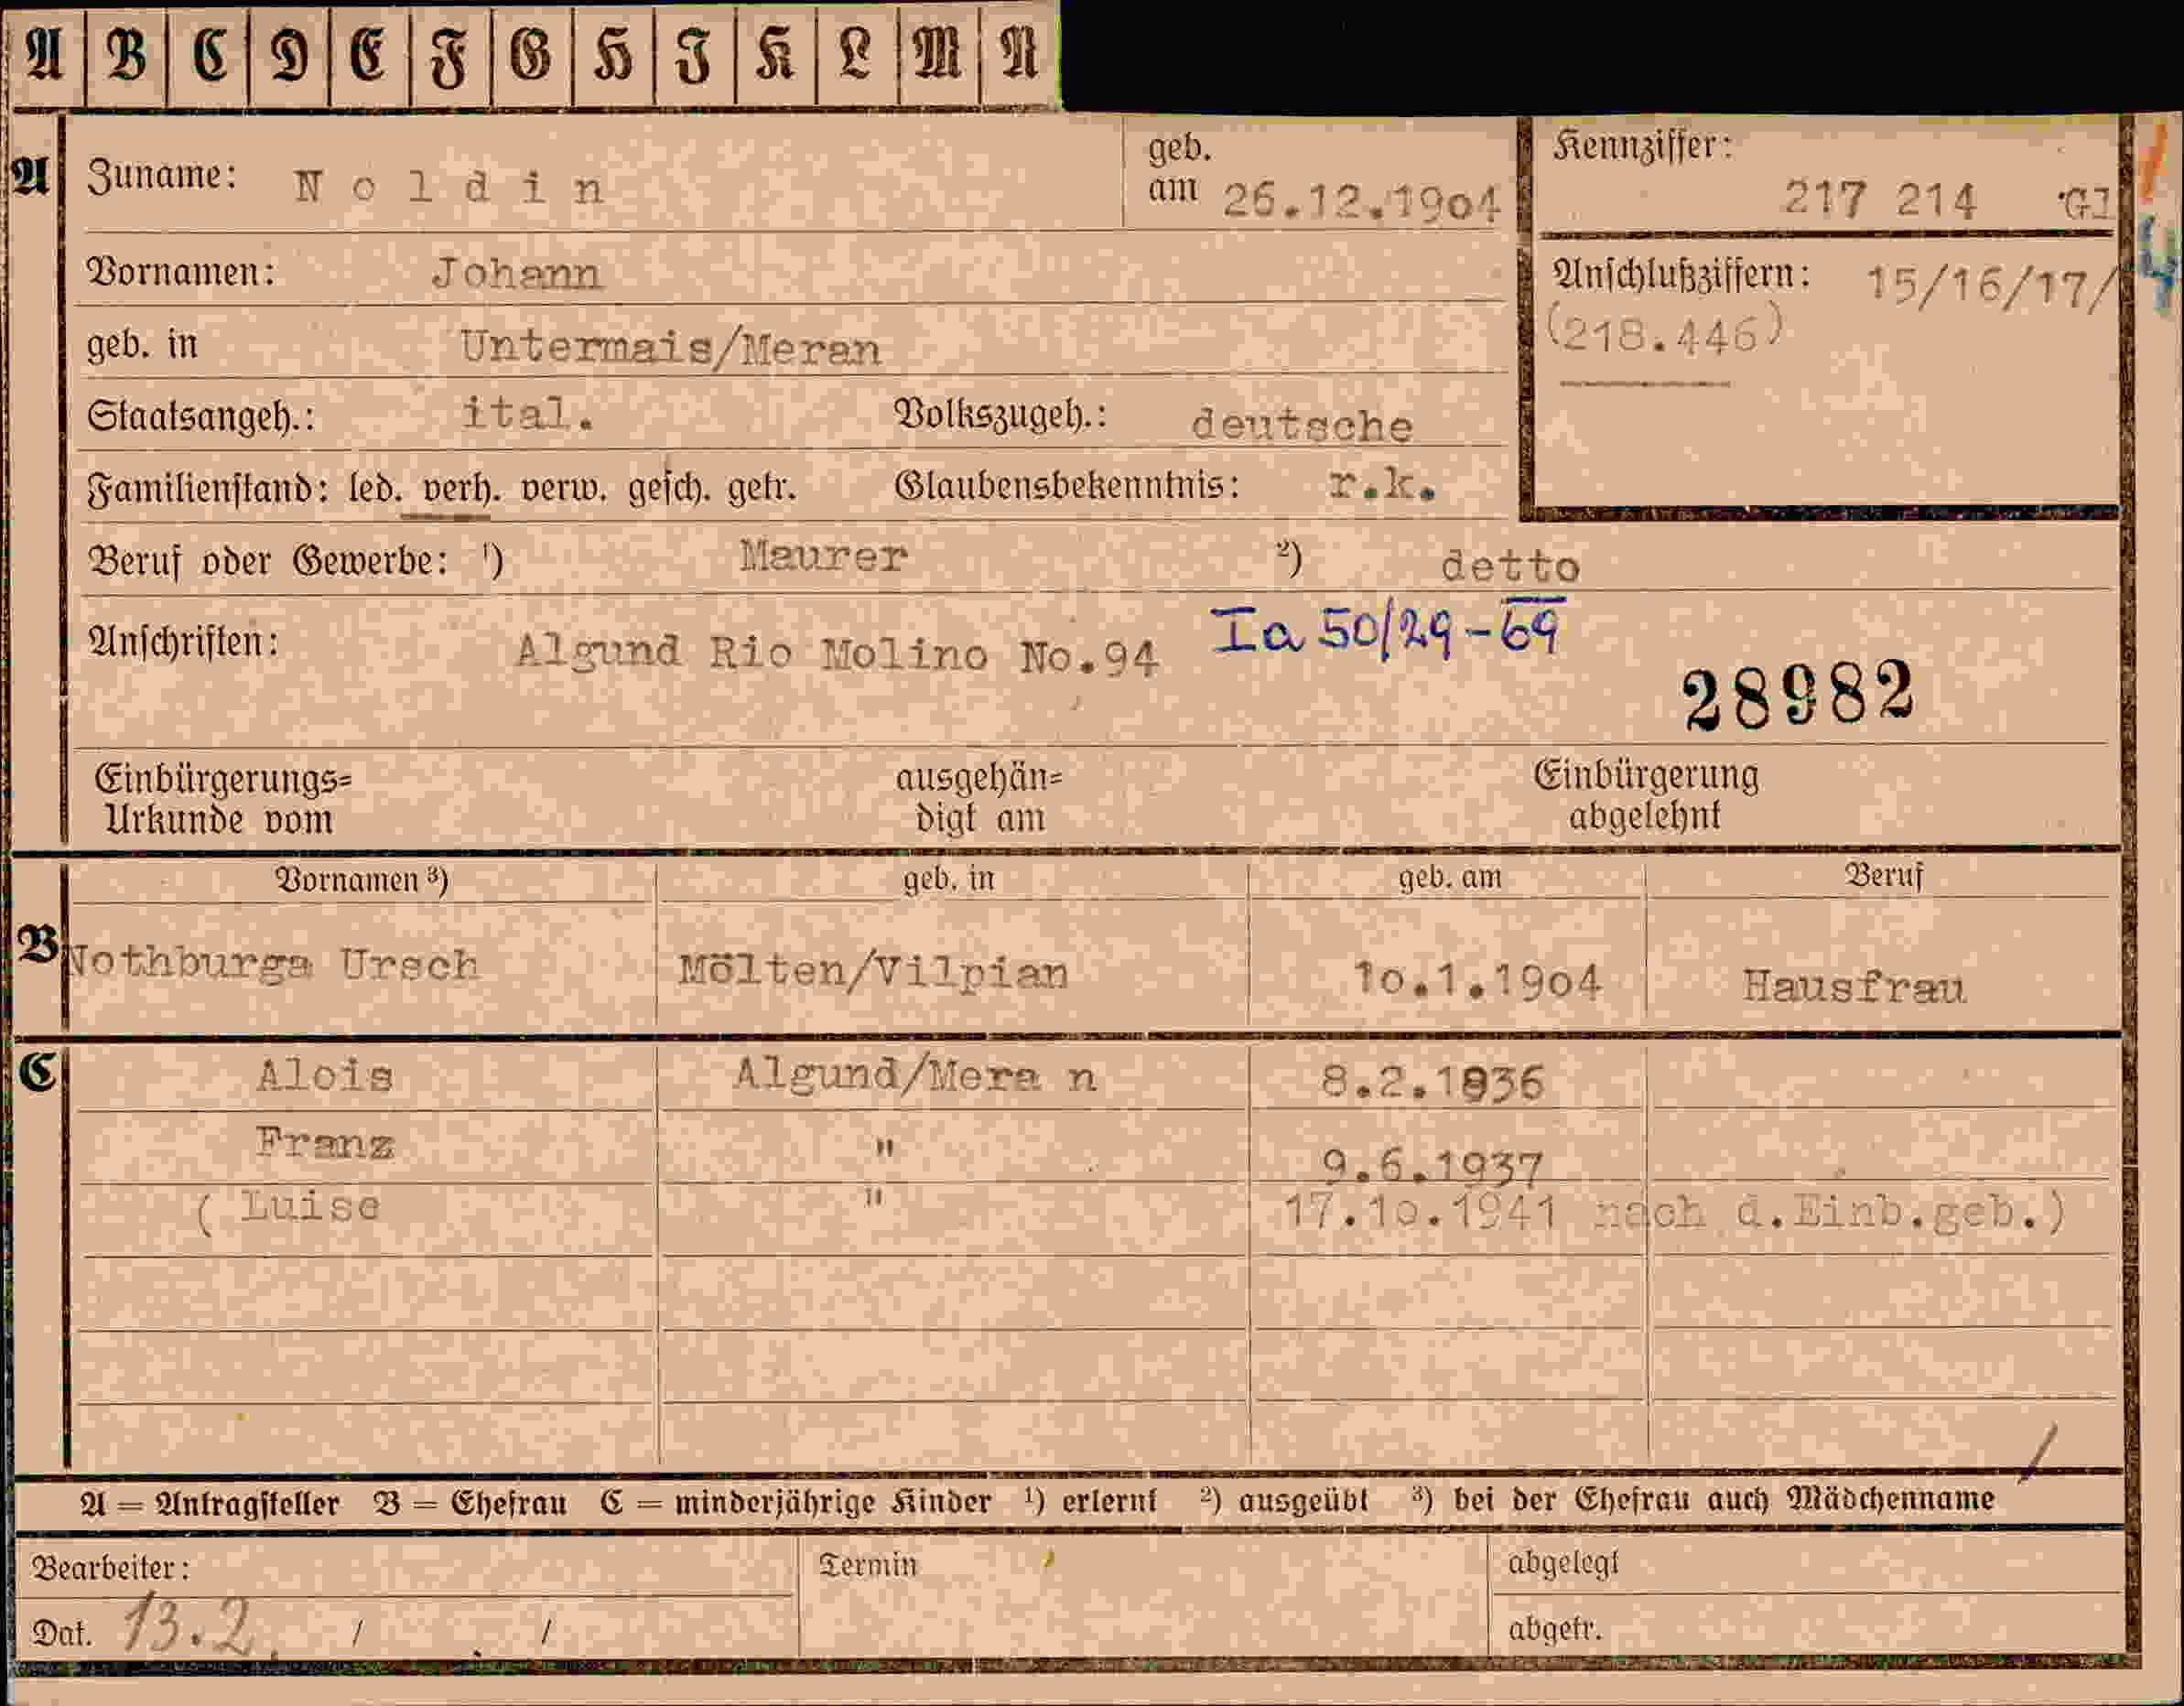 A B C D E F G H I K L M N
A Zuname: Noldin geb. am 26.12.1904 Kennziffer: 217 214 GJ
Vornamen: Johann Anschlußziffern: 15/16/17/
(218.446)
geb. in Untermais/Meran
Staatsangeh.: ital. Volkszugeh.: deutsche
Familienstand: led. verh. verw. gesch. getr. Glaubensbekenntnis: r.k.
Beruf oder Gewerbe: 1) Maurer 2) detto
Anschriften: Algund Rio Molino No.94 Ia 50/29-69
28982
Einbürgerungs= ausgehän= Einbürgerung
Urkunde vom digt am abgelehnt
Vornamen 3) geb. in geb. am Beruf
B Nothburga Ursch Mölten/Vilpian 10.1.1904 Hausfrau
C Alois Algund/Mera n 8.2.1936
Franz " 9.6.1937
( Luise " 17.10.1941 nach d.Einb.geb.)
A = Antragsteller B = Ehefrau C = minderjährige Kinder 1) erlernt 2) ausgeübt 3) bei der Ehefrau auch Mädchenname
Bearbeiter: Termin abgelegt
Dat. 13.2. / . / abgetr.